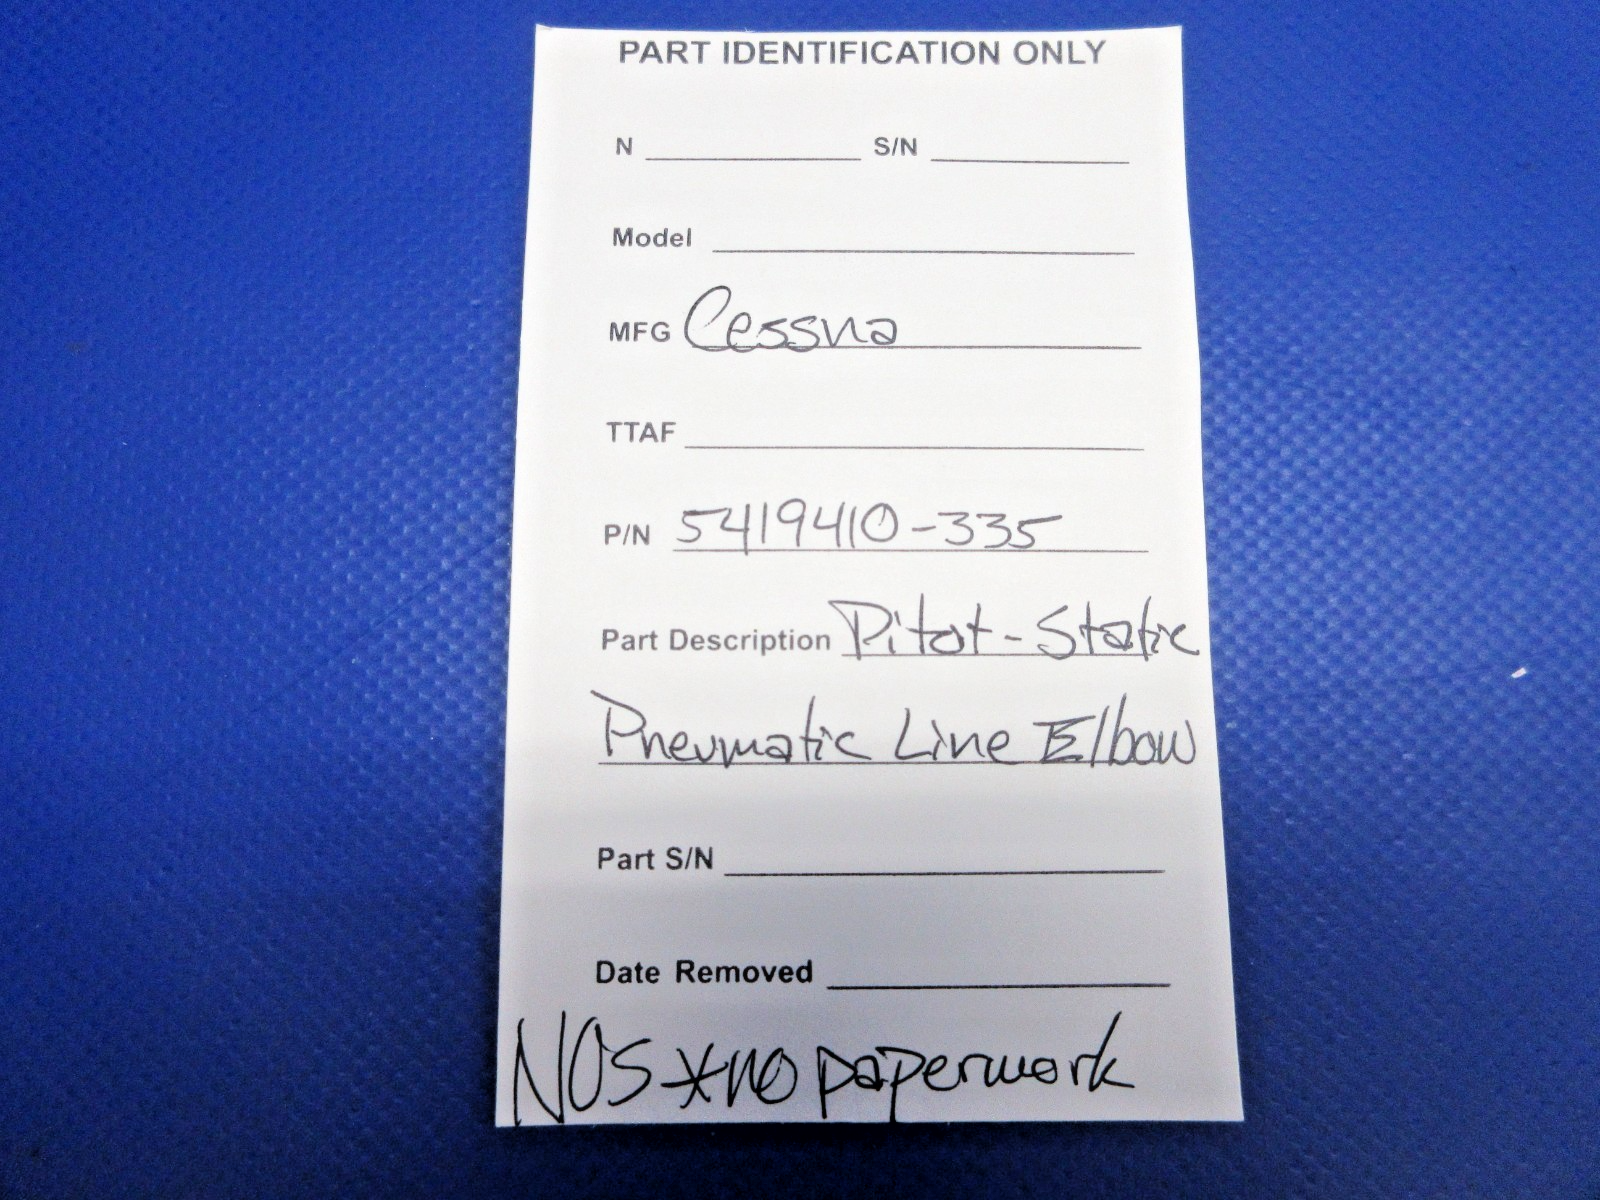 PART IDENTIFICATION ONLY
N S/N
Model
MFG Cessna
TTAF
P/N 5419410-335
Part Description Pitot-Static
Pneumatic Line Elbow
Part S/N
Date Removed
NOS *no paperwork